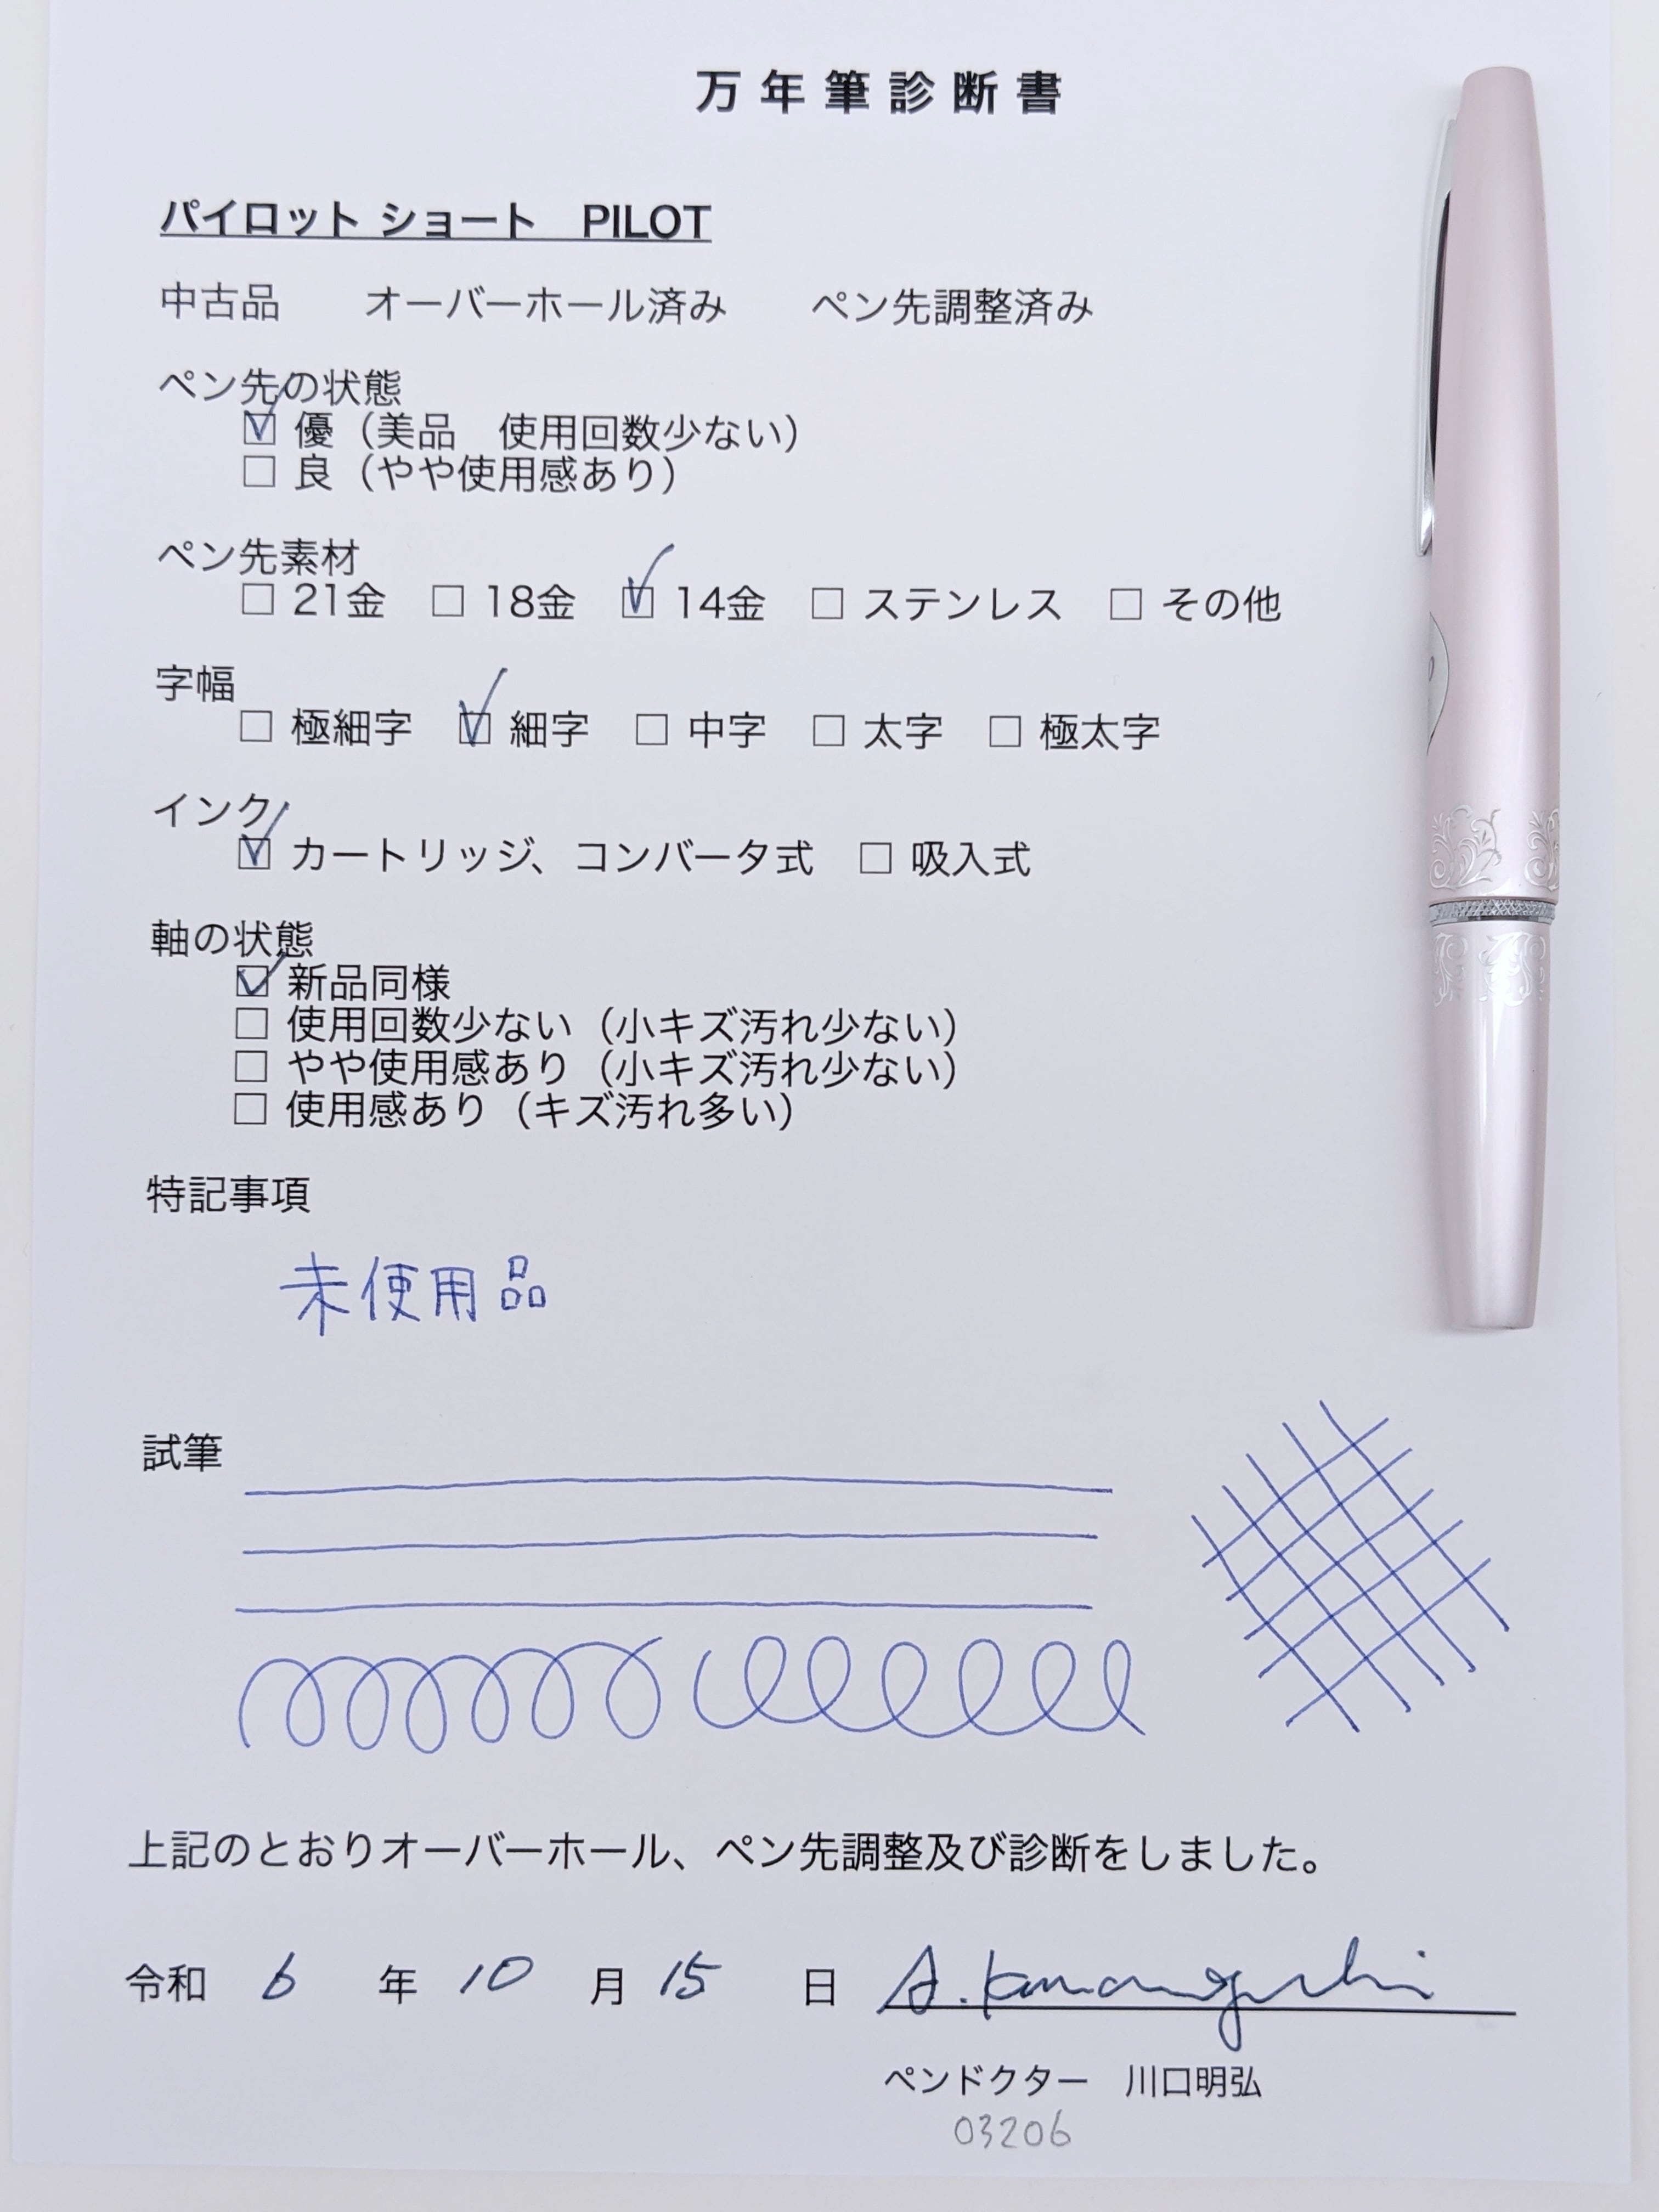 万年筆診断書
パイロット ショート　PILOT
中古品　　オーバーホール済み　　ペン先調整済み
ペン先の状態
☑ 優（美品　使用回数少ない）
□ 良（やや使用感あり）
ペン先素材
□ 21金　□ 18金　☑ 14金　□ ステンレス　□ その他
字幅
□ 極細字　☑ 細字　□ 中字　□ 太字　□ 極太字
インク
☑ カートリッジ、コンバータ式　□ 吸入式
軸の状態
☑ 新品同様
□ 使用回数少ない（小キズ汚れ少ない）
□ やや使用感あり（小キズ汚れ少ない）
□ 使用感あり（キズ汚れ多い）
特記事項
未使用品
試筆
上記のとおりオーバーホール、ペン先調整及び診断をしました。
令和 6 年 10 月 15 日 A. Kawaguchi
ペンドクター　川口明弘
03206